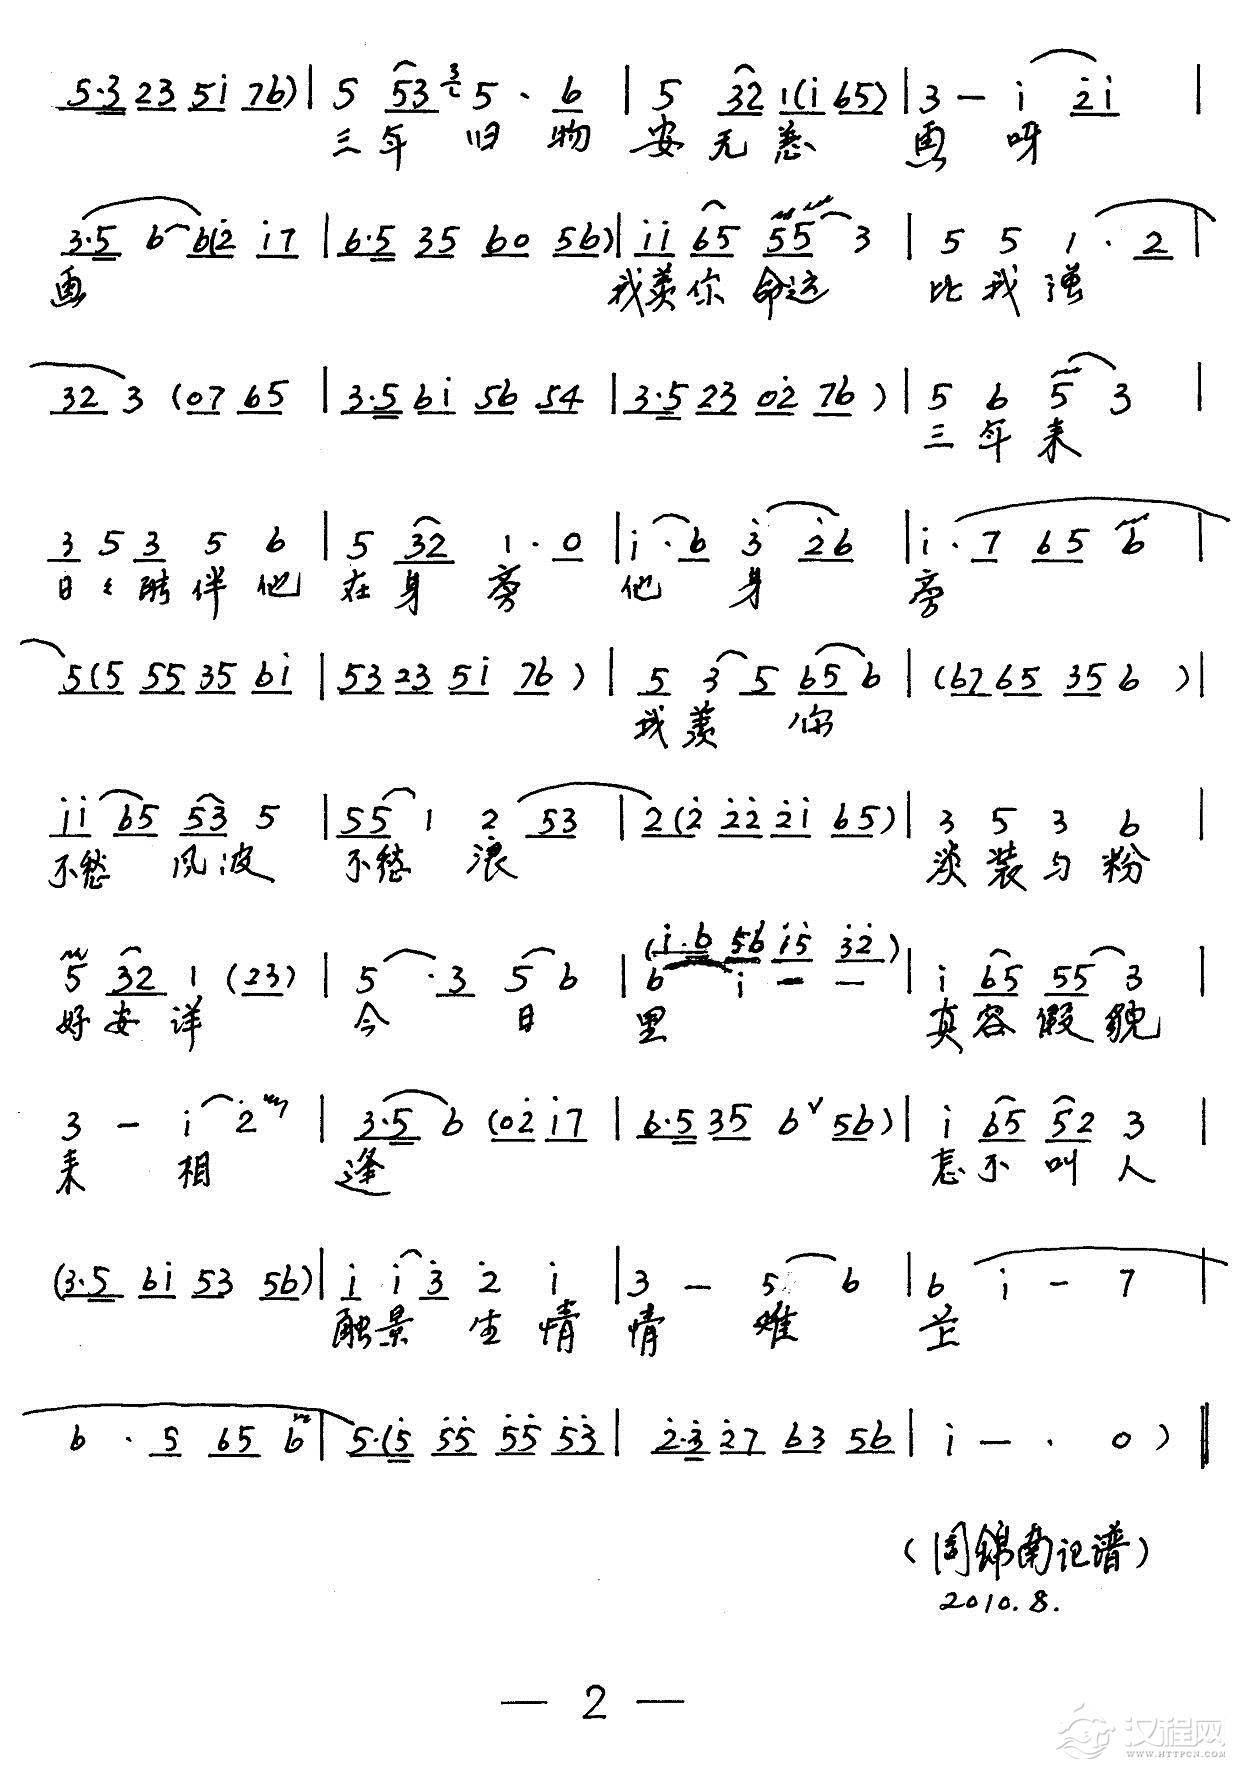 5·3 23 5i 76) | 5 53 3 5 · 6 | 5 32 1(i 65) | 3 — i 2i |
三年 旧 物 安 无 恙 画 呀
3·5 6 6(2 i7 | 6·5 35 60 56) | ii 65 55 3 | 5 5 1 · 2 |
画 我羡你 命运 比我强
32 3 (07 65 | 3·5 6i 56 54 | 3·5 23 02 76 ) | 5 6 5 3 |
三年来
3 5 3 5 6 | 5 32 1 · 0 | i · 6 3 26 | i · 7 65 6 |
日々醉伴他 在身旁 他 身 旁
5(5 55 35 6i | 53 23 5i 76 ) | 5 3 5 65 6 | (67 65 35 6 ) |
我羡 你
ii 65 53 5 | 55 1 2 53 | 2(2 22 2i 65) | 3 5 3 6 |
不愁 风波 不愁 浪 淡装与粉
(i·6 56 i5 32)
5 32 1 (23) | 5 · 3 5 6 | 6 i — — | i 65 55 3 |
好安详 今 日 里 真容假貌
3 — i 2 | 3·5 6 (02 i7 | 6·5 35 6 56) | i 65 52 3 |
来 相 逢 怎不叫人
(3·5 6i 53 56) | i i 3 2 i | 3 — 5 6 | 6 i — 7 |
触景 生情 情 难 芷
6 · 5 65 6 | 5·(5 55 55 53 | 2·3 27 63 56 | i — · 0 ) ‖
(周锦南记谱)
2010.8.
— 2 —
汉程网
WWW.HTTPCN.COM